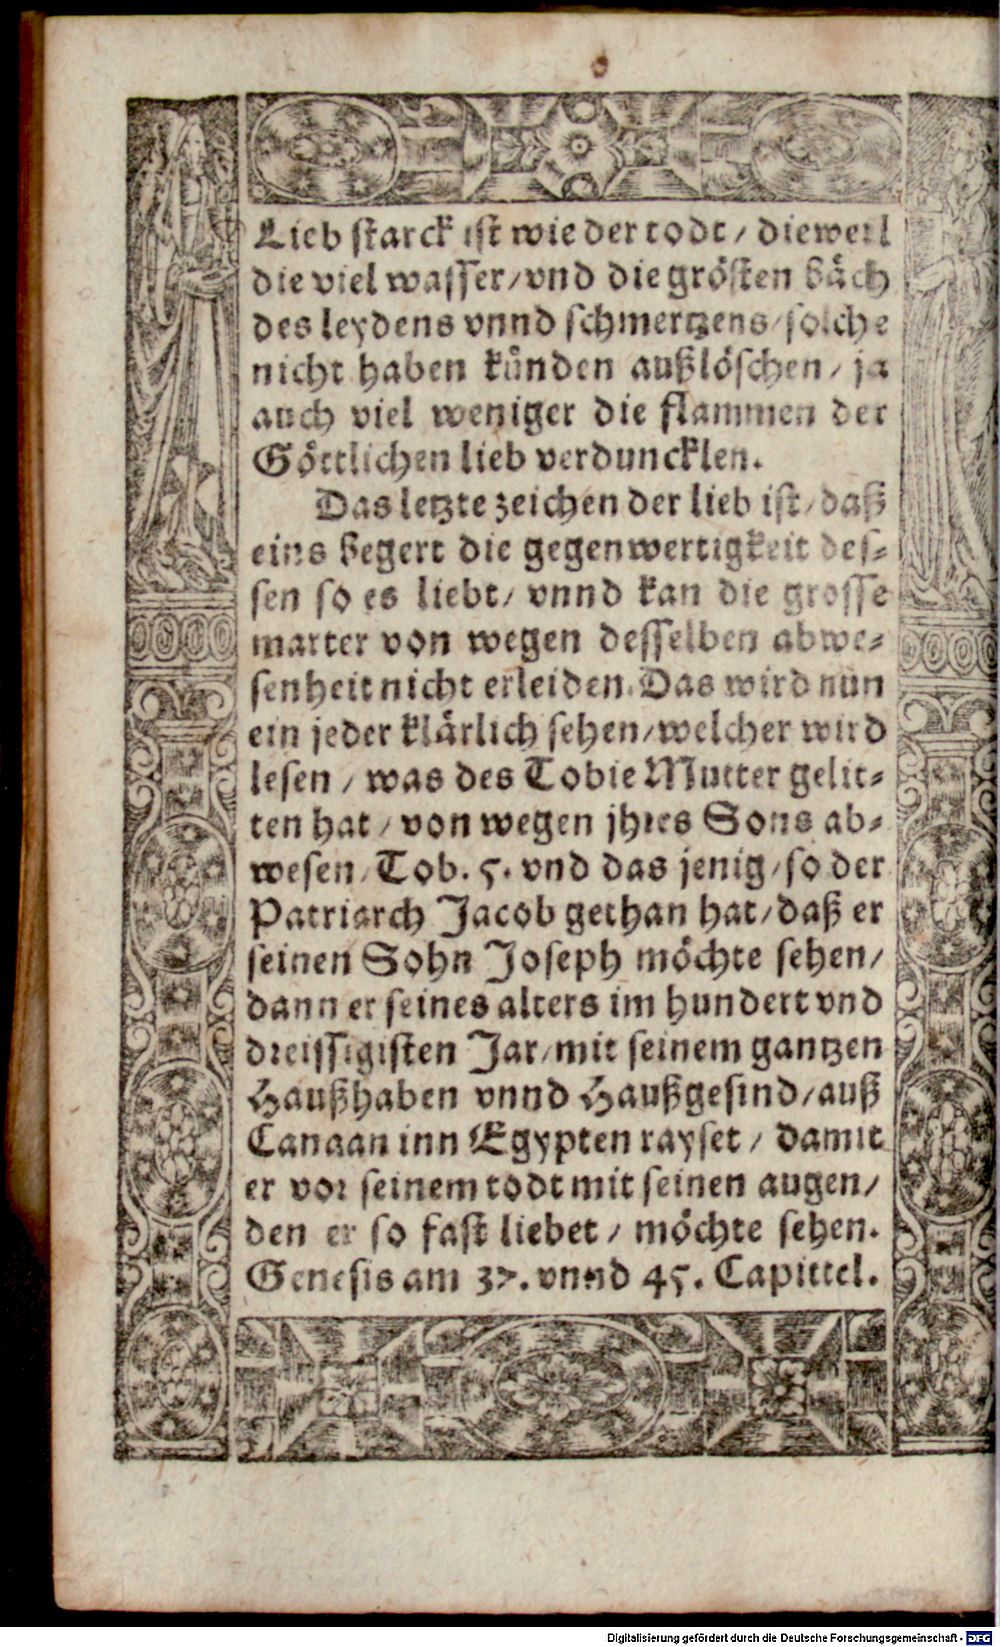 Lieb starck ist wie der todt / dieweil
die viel wasser/vnd die grösten bäch
des leydens vnnd schmertzens/solche
nicht haben künden außlöschen / ja
auch viel weniger die flammen der
Göttlichen lieb verduncklen.
Das letzte zeichen der lieb ist/daß
eins begert die gegenwertigkeit des-
sen so es liebt/ vnnd kan die grosse
marter von wegen desselben abwe-
senheit nicht erleiden. Das wird nun
ein jeder klärlich sehen/welcher wird
lesen / was des Tobie Mutter gelit-
ten hat / von wegen jhres Sons ab-
wesen/ Tob. 5. vnd das jenig/so der
Patriarch Jacob gethan hat/daß er
seinen Sohn Joseph möchte sehen/
dann er seines alters im hundert vnd
dreissigisten Jar/mit seinem gantzen
Haußhaben vnnd Haußgesind/auß
Canaan inn Egypten rayset / damit
er vor seinem todt mit seinen augen/
den er so fast liebet / möchte sehen.
Genesis am 37. vnnd 45. Capittel.
Digitalisierung gefördert durch die Deutsche Forschungsgemeinschaft - DFG